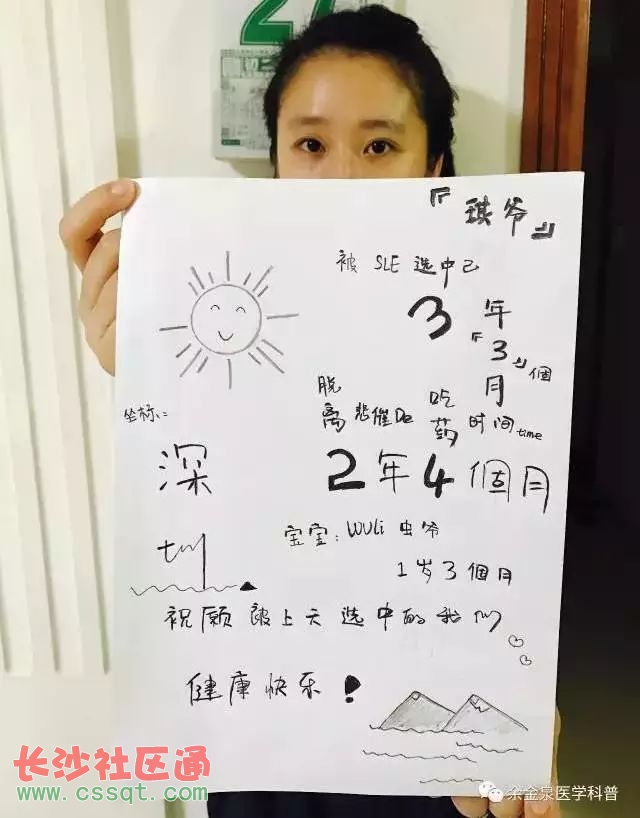 27
『琪爷』
被 SLE 选中已
3 年
『3』個
月
脱
离 悲催De 吃
药 时间 time
2年4個月
坐标：
深
圳
宝宝：WULi 虫爷
1岁3個月
祝愿 被上天选中的我们
健康快乐！
长沙社区通
www.cssqt.com
余金泉医学科普